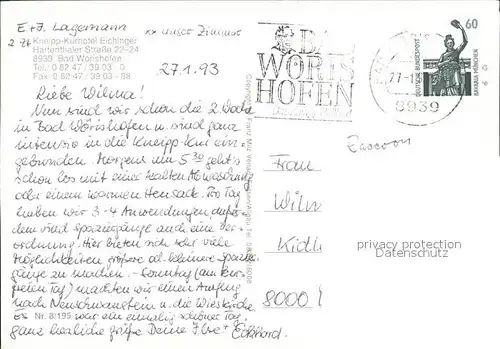 E+J. Lagemann
xx unser Zimmer
2 Z
Kneipp-Kurhotel Eichinger
Hartenthaler Straße 22-24
8939 Bad Wörishofen
Tel. 0 82 47 / 39 03 - 0
Fax 0 82 47 / 39 03 - 88
27.1.93
Liebe Wilma!
Nun sind wir schon die 2. Woche
in Bad Wörishofen u. sind ganz
intensiv in die Kneipp-Kur ein-
gebunden. Morgens um 5 30 geht's
schon los mit einer kalten Abwaschung
oder einem warmen Heusack. Pro Tag
haben wir 3-4 Anwendungen außer-
dem sind Spaziergänge auch eine Ver-
ordnung. Hier bieten sich sehr viele
Möglichkeiten größere od. kleinere Spazier-
gänge zu machen. - Sonntag (am kur-
freien Tag) machten wir einen Ausflug
nach Neuschwanstein u. die Wieskirche
Es war ein einmalig schöner Tag.
Nr. 8/195
ganz herzliche Grüße Deine Ilse + Eckhard.
BAD
WÖRIS
HOFEN
27-1
8939
60
DEUTSCHE BUNDESPOST
BAVARIA MÜNCHEN
Frau
Wilm
Kidl
8000
privacy protection
Datenschutz